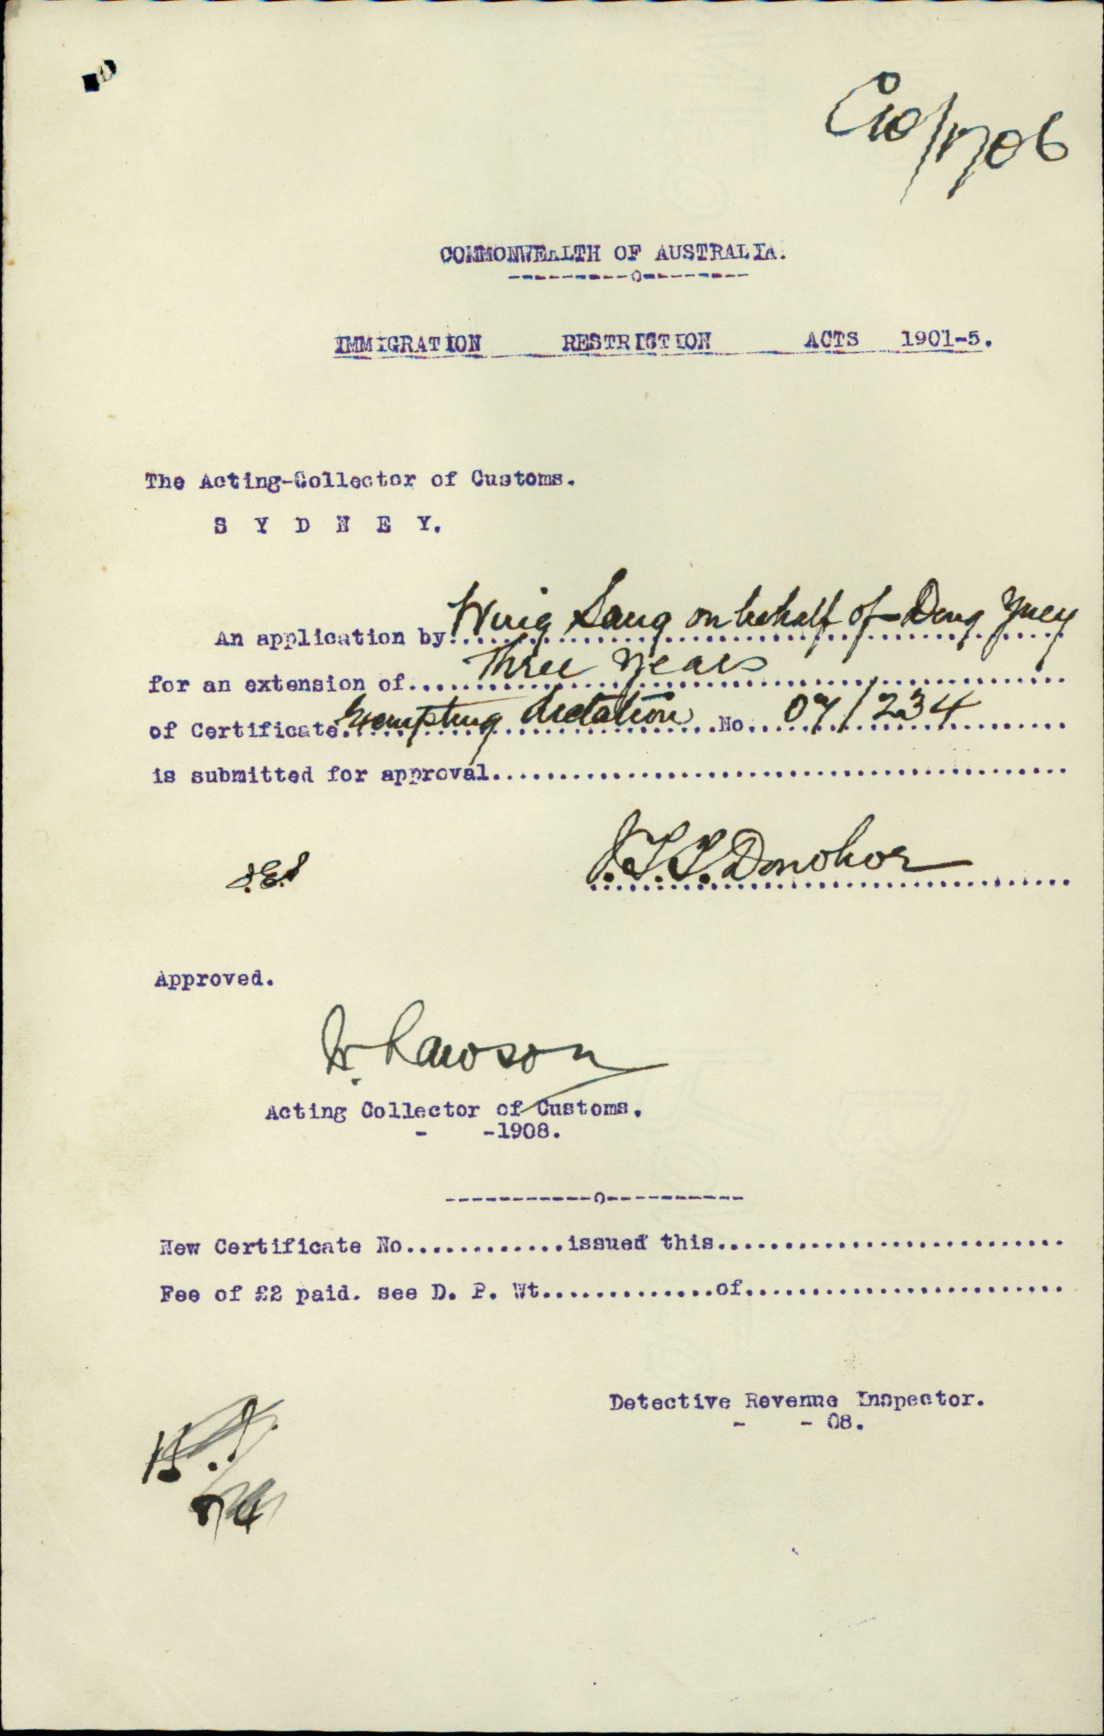 C10/1706
COMMONWEALTH OF AUSTRALIA.
---------o--------
IMMIGRATION RESTRICTION ACTS 1901-5.
The Acting-Collector of Customs.
S Y D N E Y.
An application by Wing Sang on behalf of Dong Yuey
for an extension of Three Years
of Certificate Exempting dictation No. 07/234
is submitted for approval
J.T.T. Donohoe
Approved.
W. Lawson
Acting Collector of Customs.
- -1908.
-----------o----------
New Certificate No............issued this..........................
Fee of £2 paid. see D. P. Wt.............of........................
Detective Revenue Inspector.
- - 08.